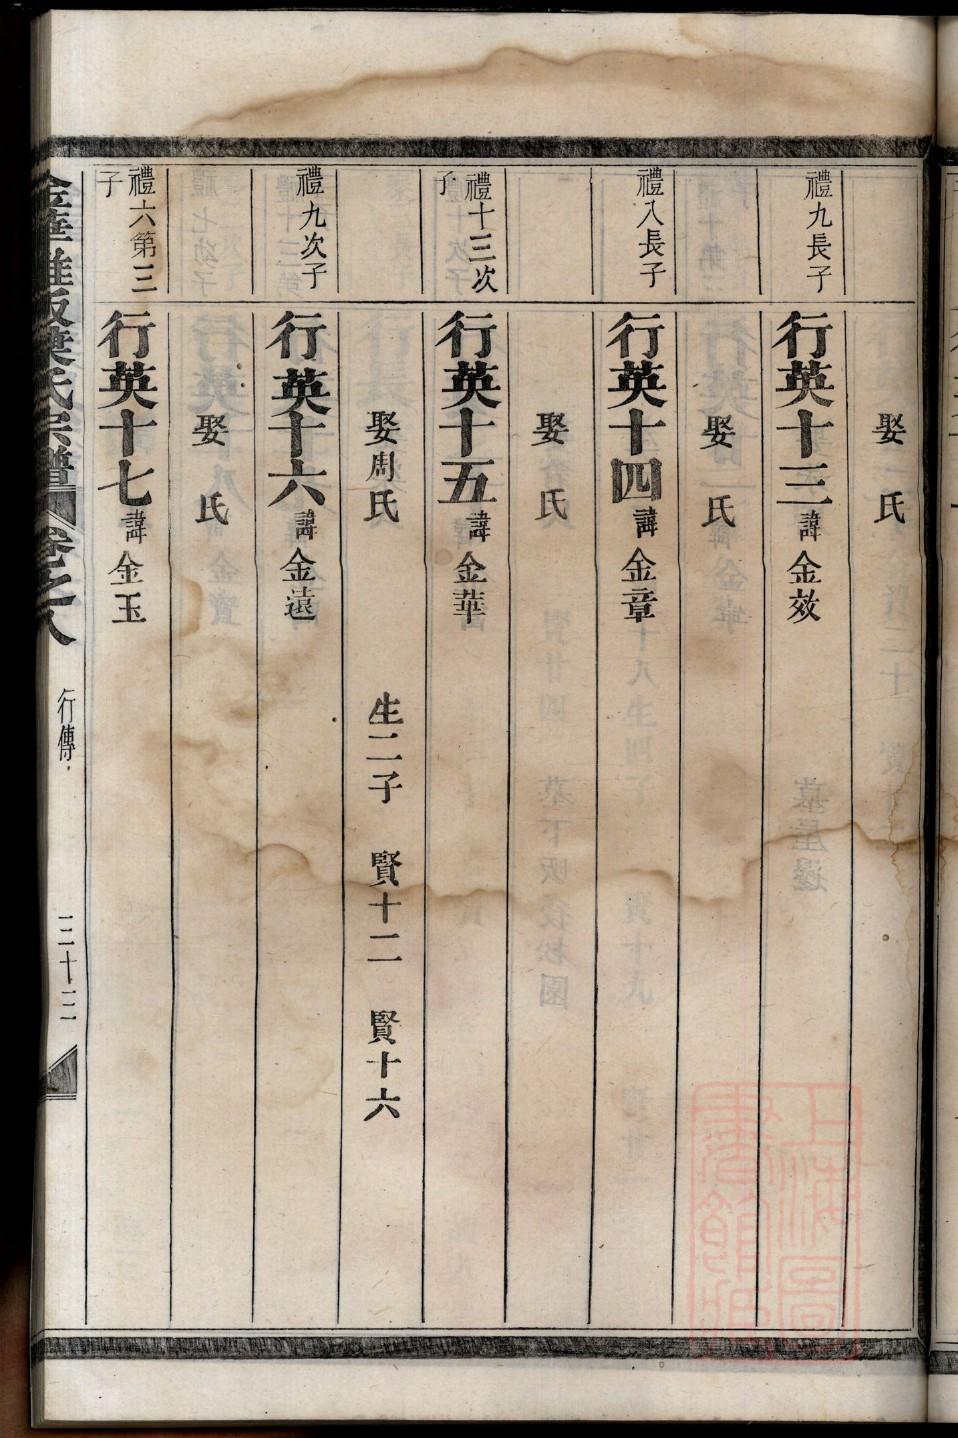 娶 氏
禮九長子
行英十三諱金效
娶 氏
禮八長子
行英十四諱金章
娶 氏
禮十三次子
行英十五諱金華
娶周氏 生二子 賢十二 賢十六
禮九次子
行英十六諱金遠
娶 氏
禮六第三子
行英十七諱金玉
氏宗譜 卷之八 行傳 三十三
上海圖書館